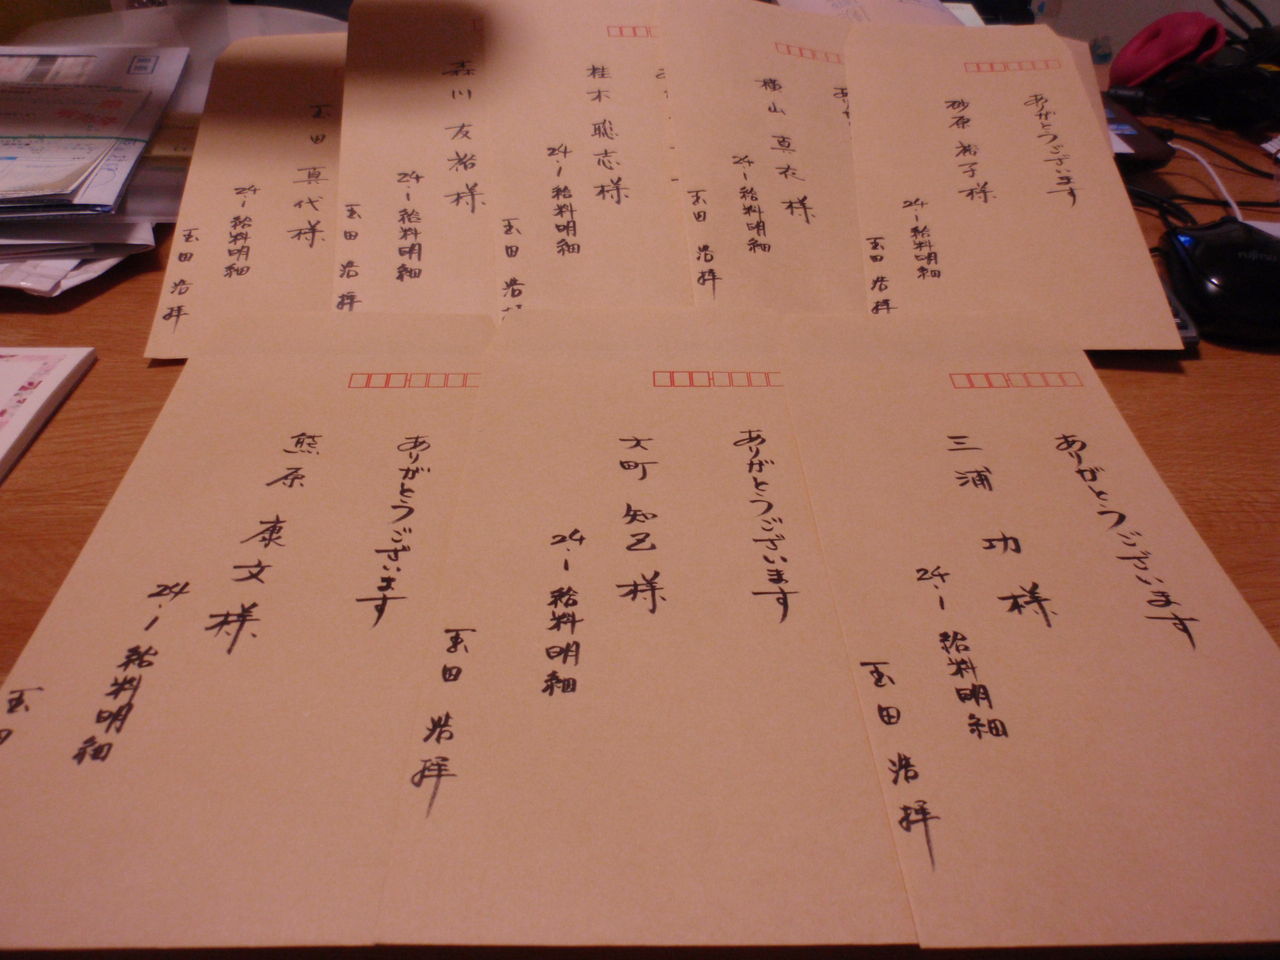 ありがとうございます
砂原 裕子様
24.1 給料明細
玉田 浩 拝
あり
横山 真衣 様
24.1 給料明細
玉田 浩 拝
桂木 聡志 様
24.1 給料明細
玉田 浩
森川 友裕 様
24.1 給料明細
玉田 浩 拝
玉田 真代 様
24.1 給料明細
玉田 浩 拝
ありがとうございます
三浦 功 様
24.1 給料明細
玉田 浩 拝
ありがとうございます
大町 知己 様
24.1 給料明細
玉田 浩 拝
ありがとうございます
熊原 康文 様
24.1 給料明細
玉田
FUJITSU